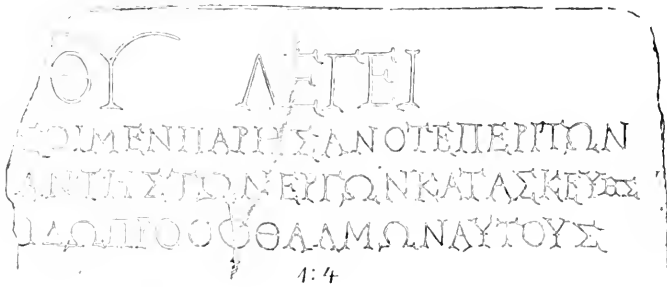 ΟΥ ΛΕΓΕΙ
ΟΙΜΕΝΠΑΡΗΣΑΝΟΤΕΠΕΡΙΤΩΝ
ΑΝΤΗΣΤΩΝΕΡΓΩΝΚΑΤΑΣΚΕΥΗΣ
ΙΔΩΠΡΟΟΦΘΑΛΜΩΝΑΥΤΟΥΣ
1:4